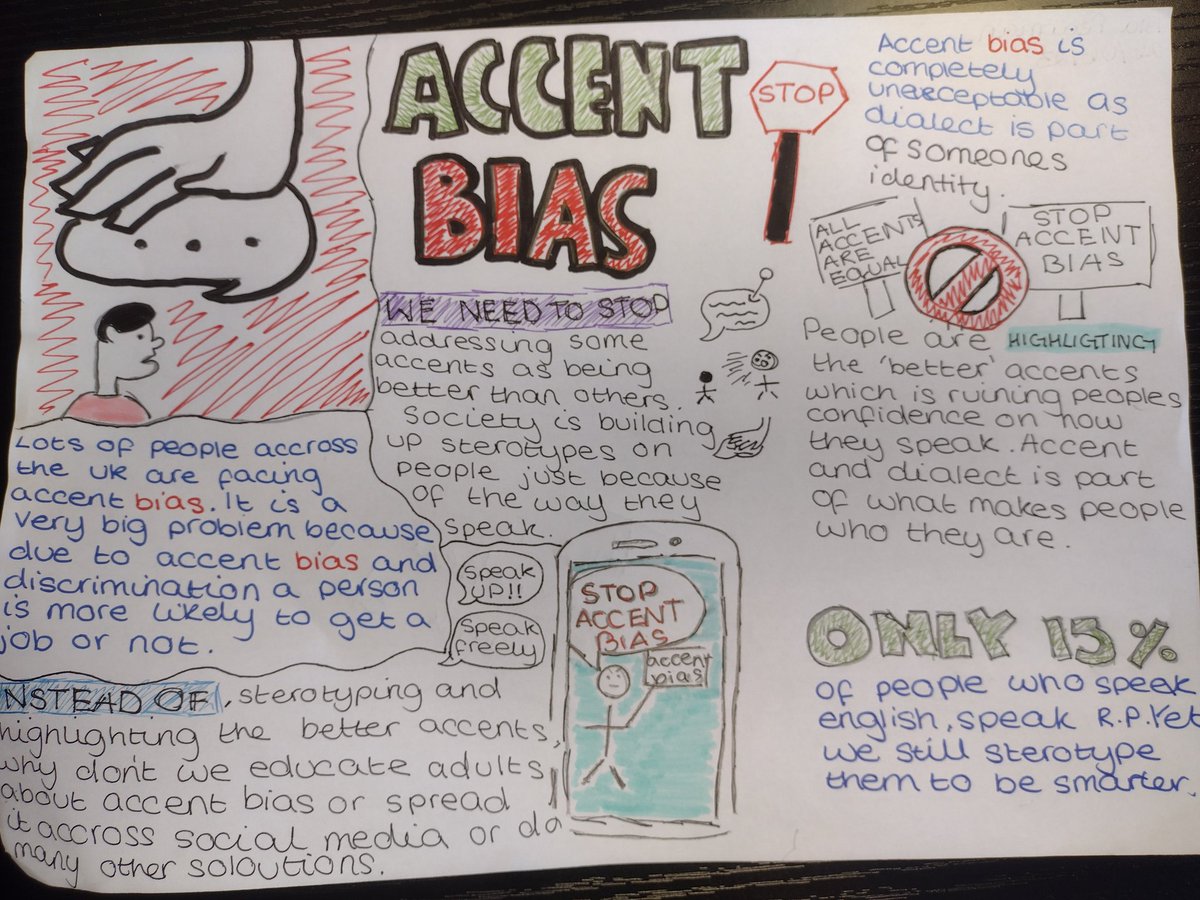 ACCENT
BIAS
STOP
Accent bias is
completely
unexceptable as
dialect is part
of someones
identity.
ALL
ACCENTS
ARE
EQUAL
STOP
ACCENT
BIAS
WE NEED TO STOP
addressing some
accents as being
better than others.
Society is building
up sterotypes on
people just because
of the way they
speak.
People are HIGHLIGTING
the 'better' accents
which is ruining peoples
confidence on how
they speak. Accent
and dialect is part
of what makes people
who they are.
Lots of people accross
the UK are facing
accent bias. It is a
very big problem because
due to accent bias and
discrimination a person
is more likely to get a
job or not.
Speak
UP!!
Speak
freely
STOP
ACCENT
BIAS
accent
bias
ONLY 15%
of people who speek
english, speak R.P. Yet
we still sterotype
them to be smarter.
INSTEAD OF, sterotyping and
highlighting the better accents,
why don't we educate adults
about accent bias or spread
it accross social media or do
many other soloutions.